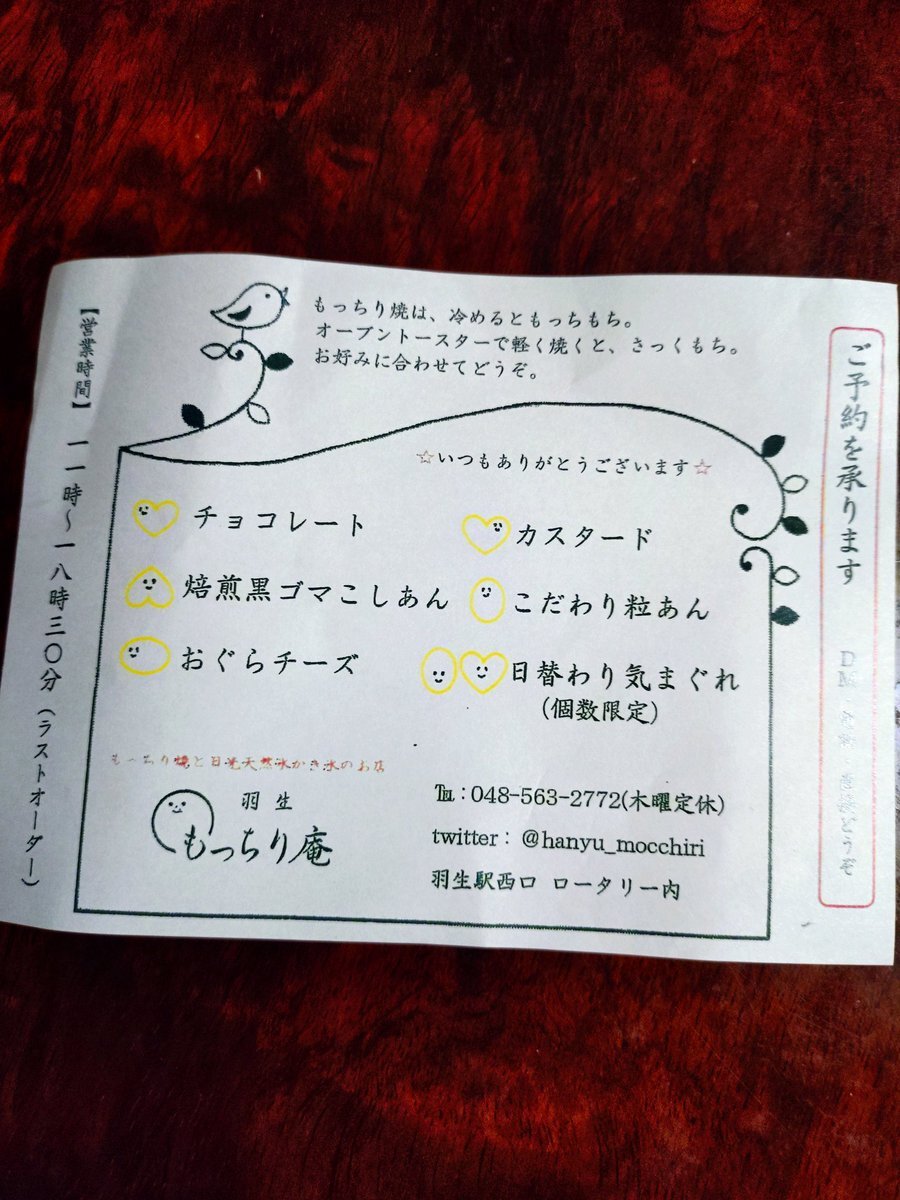 もっちり焼は、冷めるともっちもち。
オーブントースターで軽く焼くと、さっくもち。
お好みに合わせてどうぞ。
☆いつもありがとうございます☆
チョコレート
カスタード
焙煎黒ゴマこしあん
こだわり粒あん
おぐらチーズ
日替わり気まぐれ
(個数限定)
もっちり焼と日光天然氷かき氷のお店
羽生
もっちり庵
℡:048-563-2772(木曜定休)
twitter: @hanyu_mocchiri
羽生駅西口 ロータリー内
ご予約を承ります DM・電話・直接どうぞ
【営業時間】 一一時～一八時三〇分(ラストオーダー)